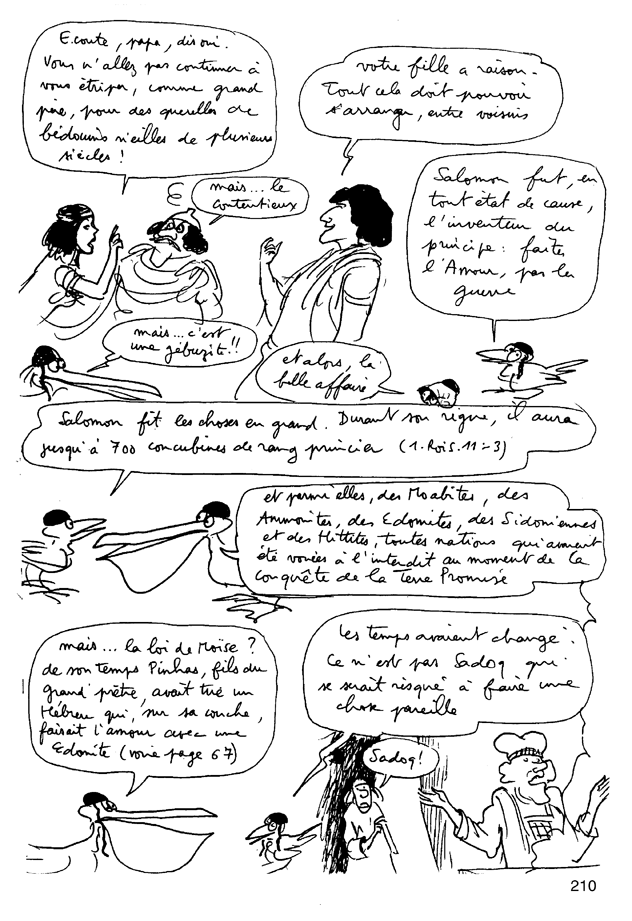 Ecoute, papa, dis oui.
Vous n'allez pas continuer à
vous étriper, comme grand
père, pour des querelles de
bédouins vieilles de plusieurs
siècles !
votre fille a raison.
Tout cela doit pouvoir
s'arranger, entre voisins
mais... le
contentieux
Salomon fut, en
tout état de cause,
l'inventeur du
principe : faites
l'Amour, pas la
guerre
mais... c'est
une jébuzite !!
et alors, la
belle affaire
Salomon fit les choses en grand. Durant son règne, il aura
jusqu'à 700 concubines de rang princier (1.Rois.11-3)
et parmi elles, des Moabites, des
Ammonites, des Edomites, des Sidoniennes
et des Hittites, toutes nations qui avaient
été vouées à l'interdit au moment de la
conquête de la Terre Promise
mais... la loi de Moïse ?
de son temps Pinhas, fils du
grand prêtre, avait tué un
Hébreu qui, sur sa couche,
faisait l'amour avec une
Edomite (voir page 67)
Les temps avaient changé..
Ce n'est pas Sadoq qui
se serait risqué à faire une
chose pareille
Sadoq !
210